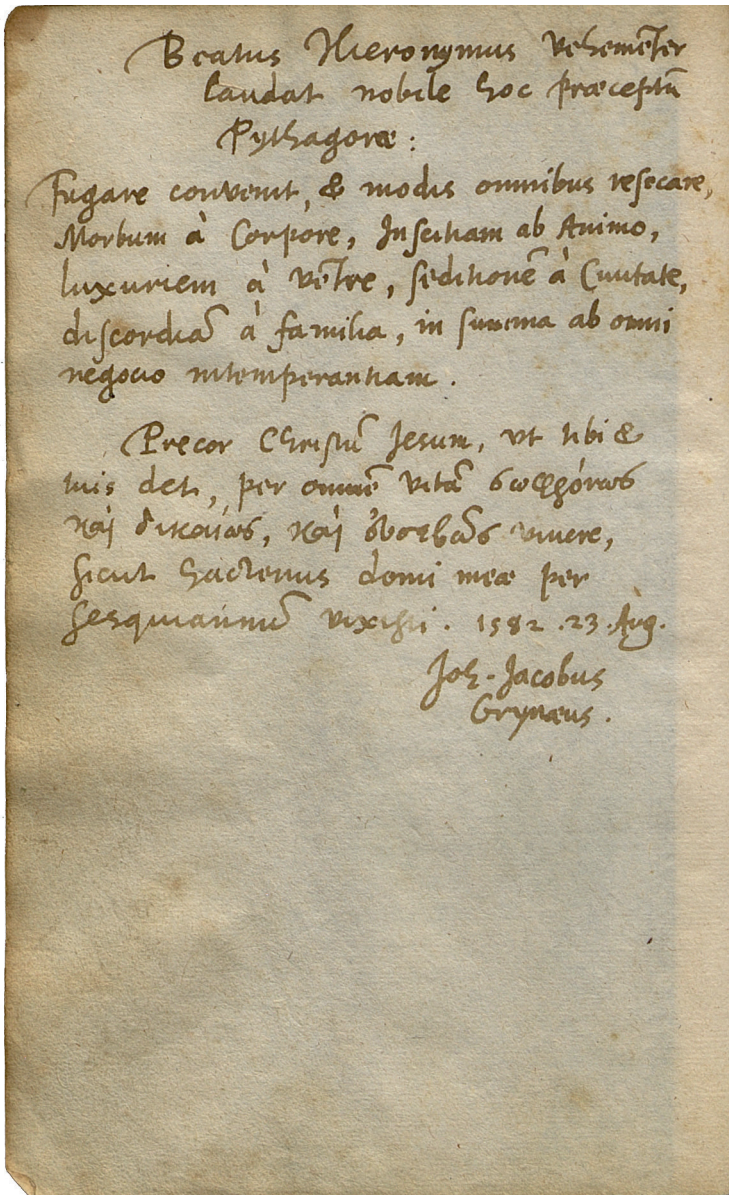 Beatus Hieronymus vehemēter
laudat nobile hoc præceptū
Pythagoræ:
Fugare convenit, & modis omnibus resecare,
Morbum à Corpore, Inscitiam ab Animo,
luxuriem à vētre, seditionē à Civitate,
discordiā à familia, in summa ab omni
negocio intemperantiam.
Precor Christū Jesum, ut tibi &
tuis det, per omnē vitā σωφρόνως
καὶ δικαίως, καὶ ὀυσεβῶς vivere,
sicut hactenus domi meæ per
sesquiannū vixisti. 1582. 23. Aug.
Joh. Jacobus
Grynæus.